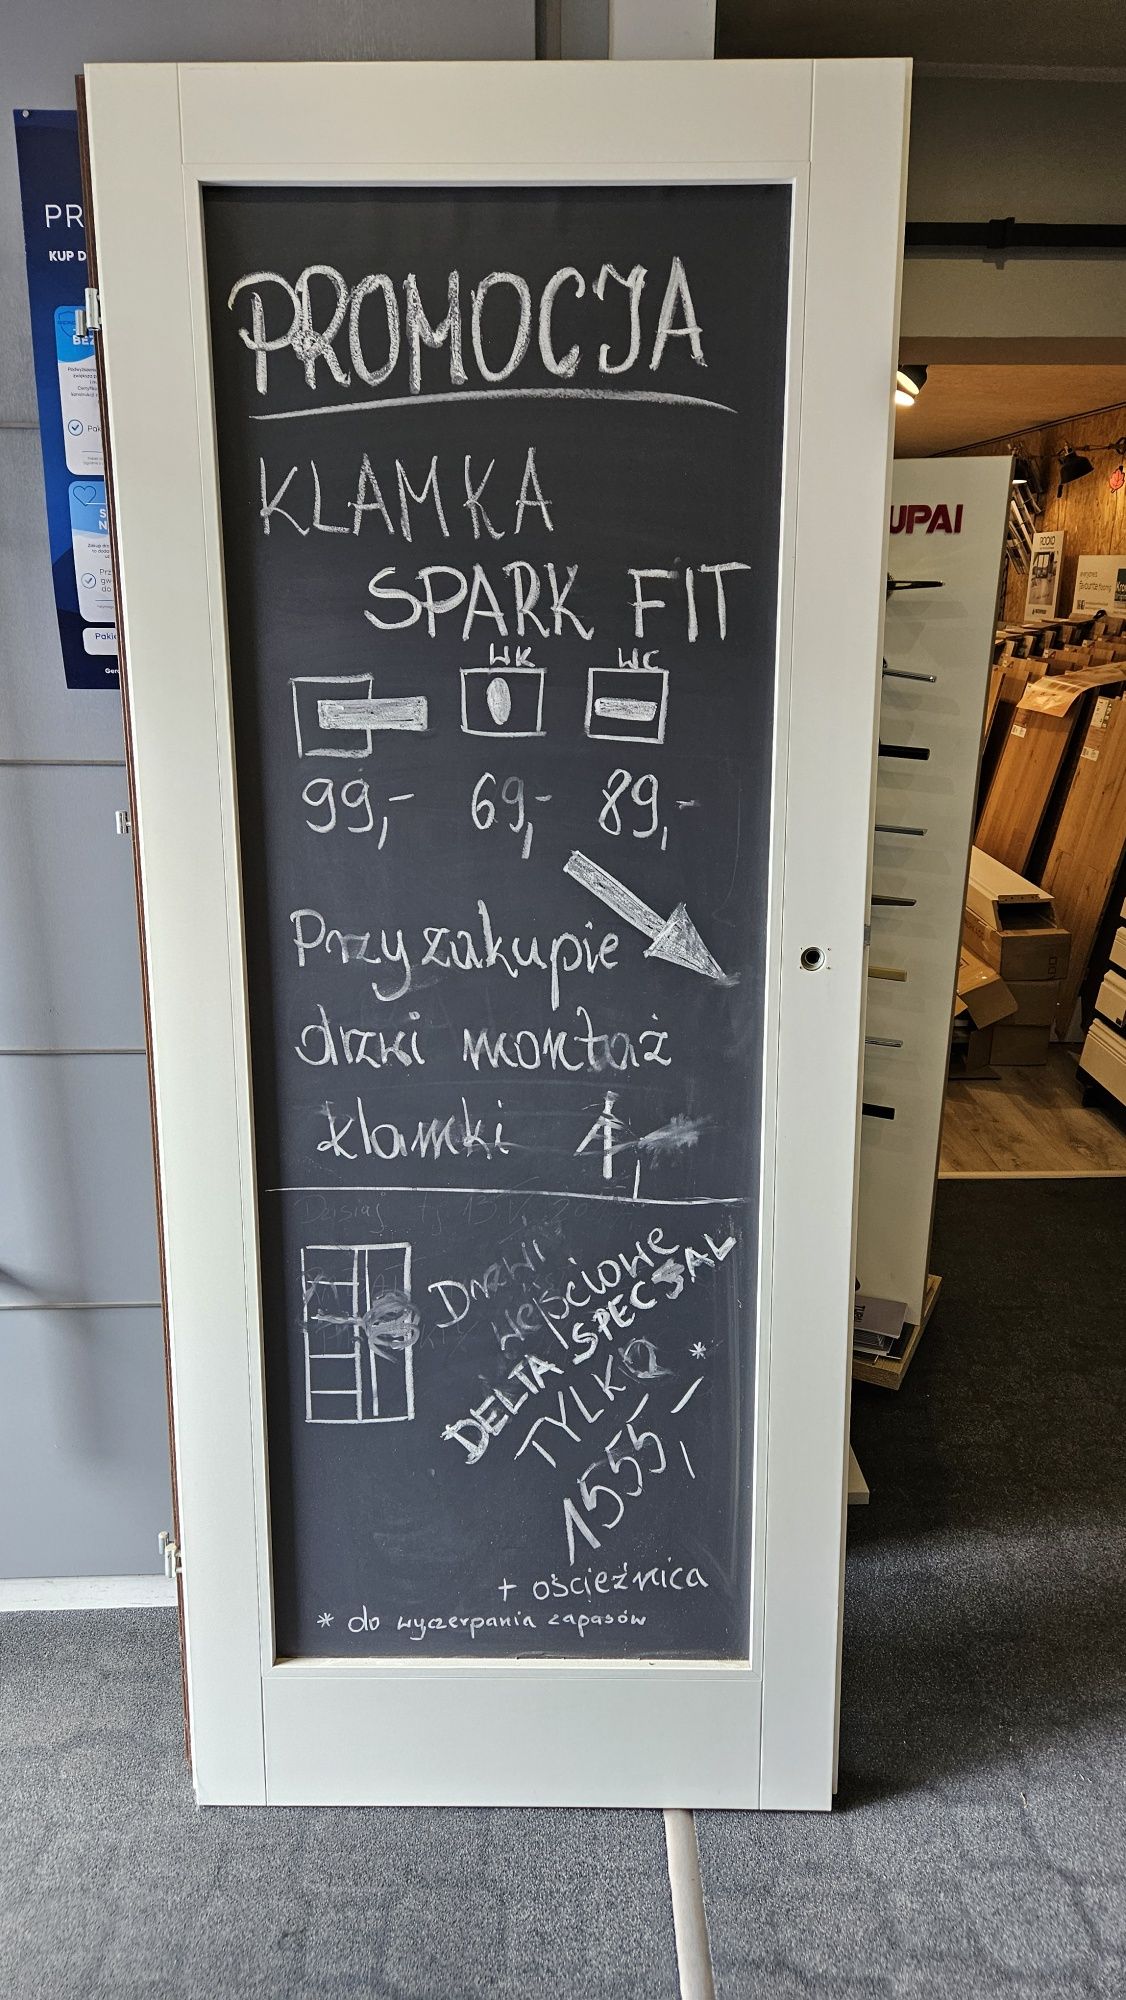 PROMOCJA
KLAMKA
SPARK FIT
WK WC
99,- 69,- 89,-
Przy zakupie
drzwi montaż
klamki
Drzwi
wejściowe
DELTA SPECJAL
TYLKO *
1555,-
+ ościeżnica
* do wyczerpania zapasów
PR
KUP D
BEZ
Pak
S
N
Pakie
UPAI